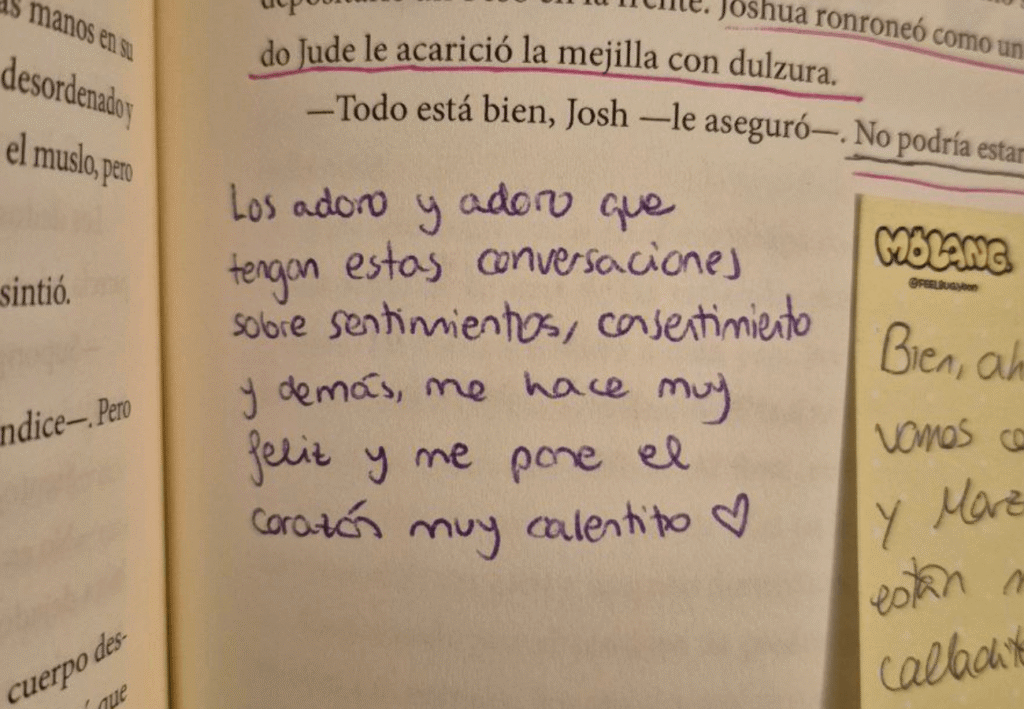 manos en su
desordenado y
el muslo, pero
sintió.
ndice—. Pero
cuerpo des-
que
en la frente. Joshua ronroneó como un
do Jude le acarició la mejilla con dulzura.
—Todo está bien, Josh —le aseguró—. No podría estar
Los adoro y adoro que
tengan estas conversaciones
sobre sentimientos, consentimiento
y demás, me hace muy
feliz y me pone el
corazón muy calentito ♡
MOLANG
Bien, ah
vamos
y Marz
están
calladit